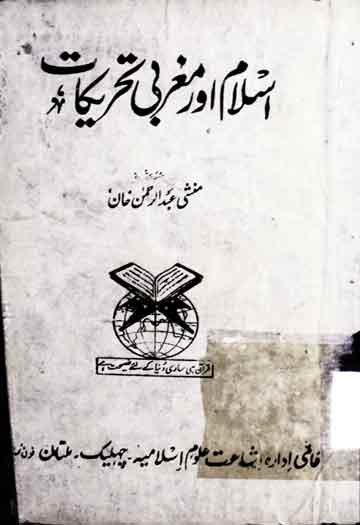 اسلام اور مغربی تحریکات
منشی عبدالرحمٰن خان
قرآن ہی ساری دنیا کے لئے نصیحت ہے
ادارہ اشاعت علوم اسلامیہ - چہلیک - ملتان فون